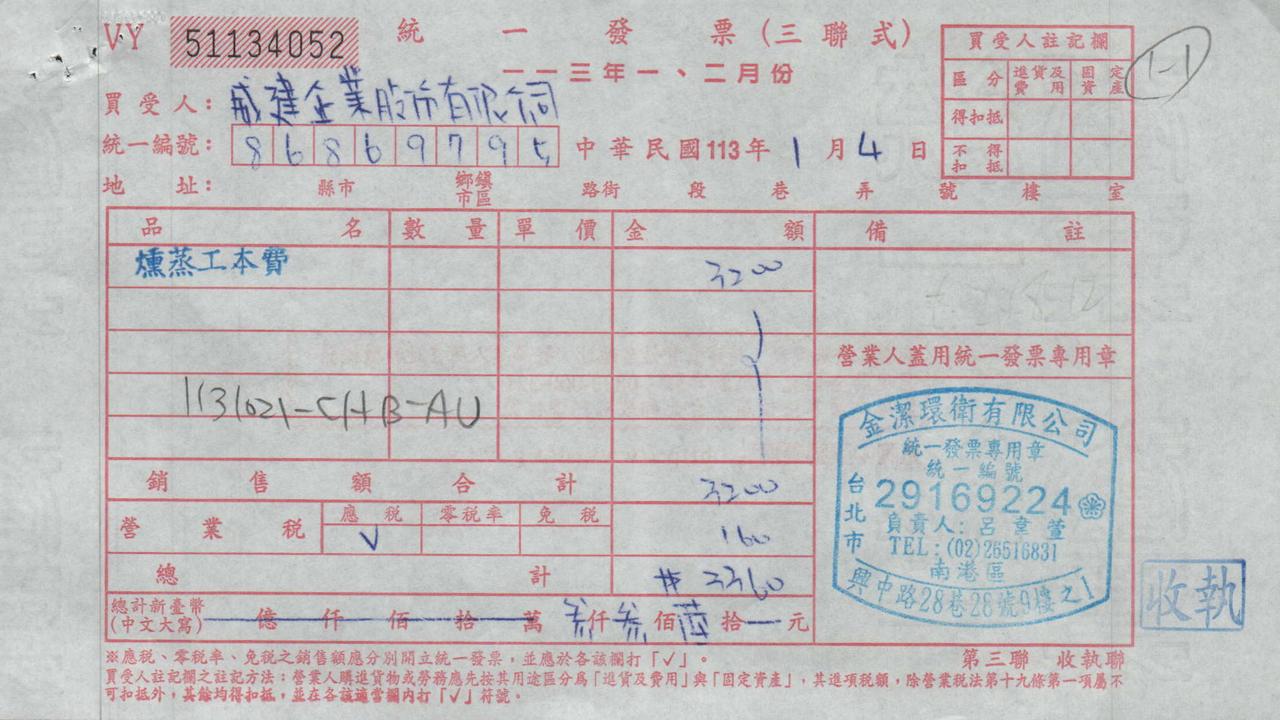 VY 51134052 統一發票(三聯式)
一一三年一、二月份
買受人註記欄
區分 進貨及費用 固定資產
得扣抵
不得扣抵
1-1
買受人:威建企業股份有限公司
統一編號:86869795 中華民國113年1月4日
地址: 縣市 鄉鎮市區 路街 段 巷 弄 號 樓 室
品名 數量 單價 金額 備註
燻蒸工本費 3200
營業人蓋用統一發票專用章
1131021-CHB-AU
銷售額合計 3200
營業稅 應稅 零稅率 免稅
✓ 160
總計 #3360
總計新臺幣(中文大寫) 億仟佰拾萬 叁仟叁佰陸拾 元
金潔環衛有限公司
統一發票專用章
統一編號
29169224
負責人:呂韋萱
TEL:(02)26516831
台北市南港區
興中路28巷28號9樓之1
收執
※應稅、零稅率、免稅之銷售額應分別開立統一發票,並應於各該欄打「✓」。
第三聯 收執聯
買受人註記欄之註記方法:營業人購進貨物或勞務應先按其用途區分為「進貨及費用」與「固定資產」,其進項稅額,除營業稅法第十九條第一項屬不
可扣抵外,其餘均得扣抵,並在各該適當欄內打「✓」符號。